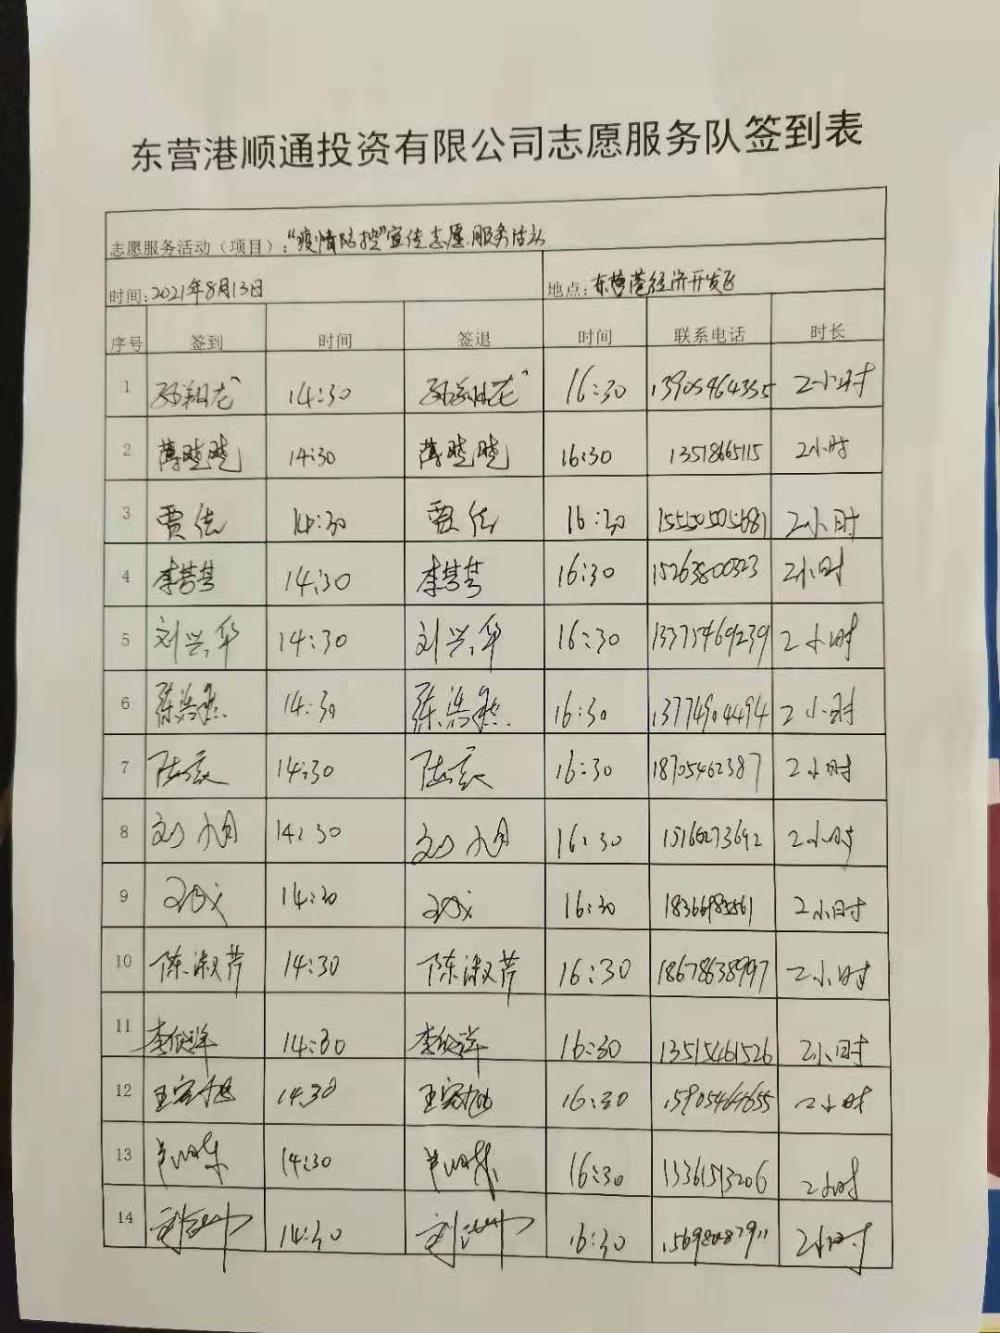 东营港顺通投资有限公司志愿服务队签到表
志愿服务活动（项目）：“疫情防控”宣传志愿服务活动
时间：2021年8月13日 地点：东营港经济开发区
序号 签到 时间 签退 时间 联系电话 时长
1 孙翔龙 14:30 孙翔龙 16:30 13905464355 2小时
2 薄晓晓 14:30 薄晓晓 16:30 13518665115 2小时
3 贾佳 14:30 贾佳 16:30 15550505681 2小时
4 李芸芸 14:30 李芸芸 16:30 15263800323 2小时
5 刘兴华 14:30 刘兴华 16:30 13375469239 2小时
6 陈浩然 14:30 陈浩然 16:30 13774904494 2小时
7 14:30 16:30 18705462387 2小时
8 刘 14:30 刘 16:30 15166273692 2小时
9 14:30 16:30 2小时
10 陈淑芹 14:30 陈淑芹 16:30 18678638997 2小时
11 李欣洋 14:30 李欣洋 16:30 13515461526 2小时
12 14:30 16:30 15905464655 2小时
13 14:30 16:30 13361513206 2小时
14 14:30 16:30 2小时